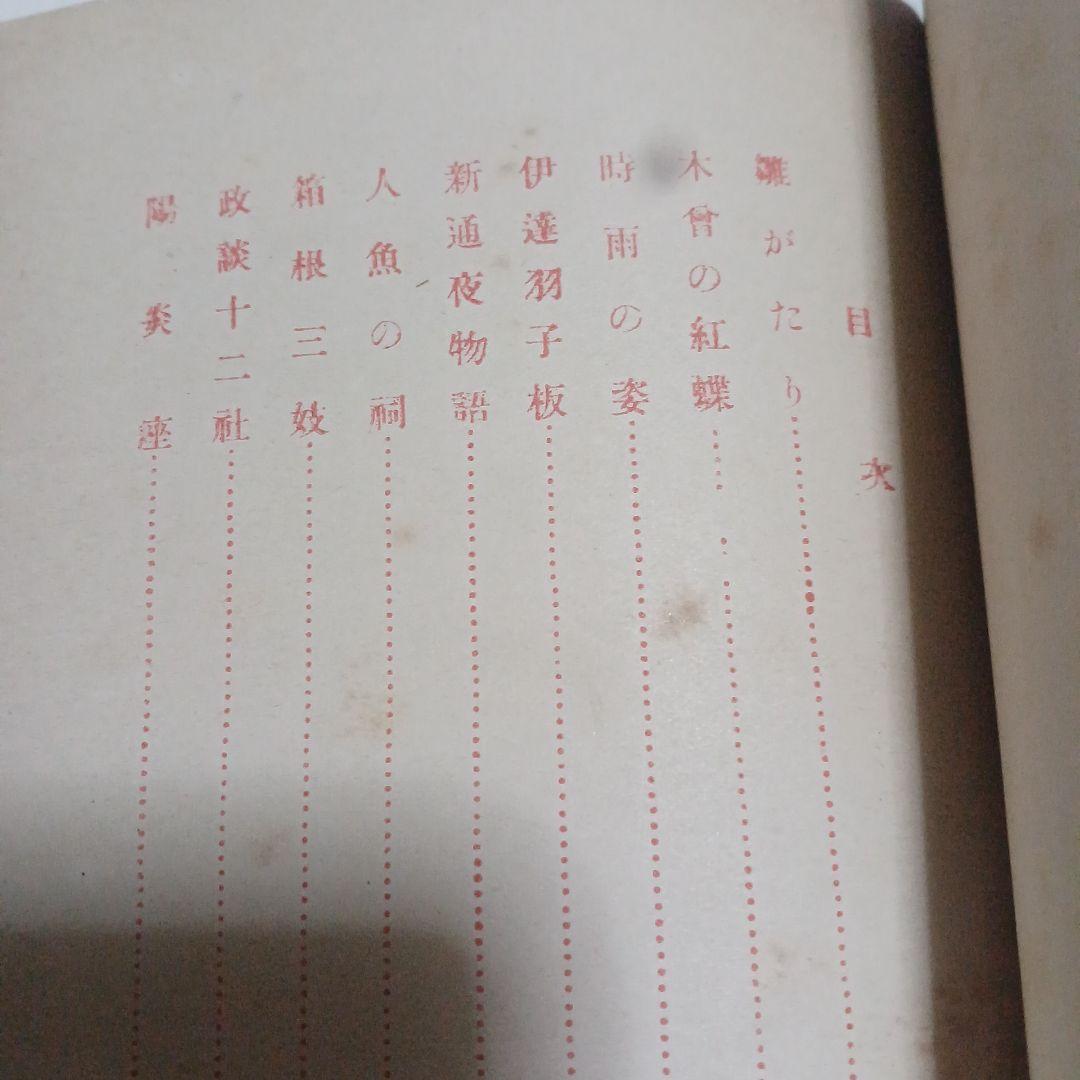 目次
雛がたり
木曾の紅蝶
時雨の姿
伊達羽子板
新通夜物語
人魚の祠
箱根三妓
政談十二社
陽炎座